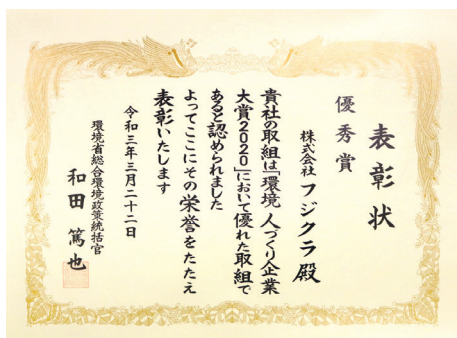 表彰状
優秀賞
株式会社 フジクラ 殿
貴社の取組は「環境 人づくり企業
大賞2020」において優れた取組で
あると認められました
よってここにその栄誉をたたえ
表彰いたします
令和三年三月二十二日
環境省総合環境政策統括官
和田 篤也